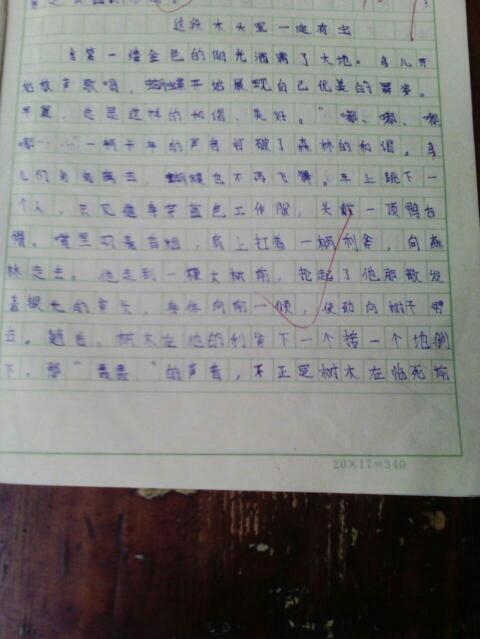 这段木头里一定有虫
当第一缕金色的阳光洒满了大地。鸟儿开
始放声歌唱，蝴蝶开始展现自己优美的舞姿。
早晨，总是这样的和谐、美好。"嘟、嘟、嘟
嘟……"一辆卡车的声音打破了森林的和谐。鸟
儿们匆匆离去，蝴蝶也不再飞舞。车上跳下一
个人，只见他身穿蓝色工作服，头戴一顶鸭舌
帽。嘴里叼着香烟，肩上扛着一柄利斧，向森
林走去。他走到一棵大树前，抡起了他那散发
着银光的斧头，身体向前一倾，使劲向树干劈
去。随后，树木在他的利斧下一个接一个地倒
下，那"轰轰"的声音，不正是树木在临死前
20×17=340